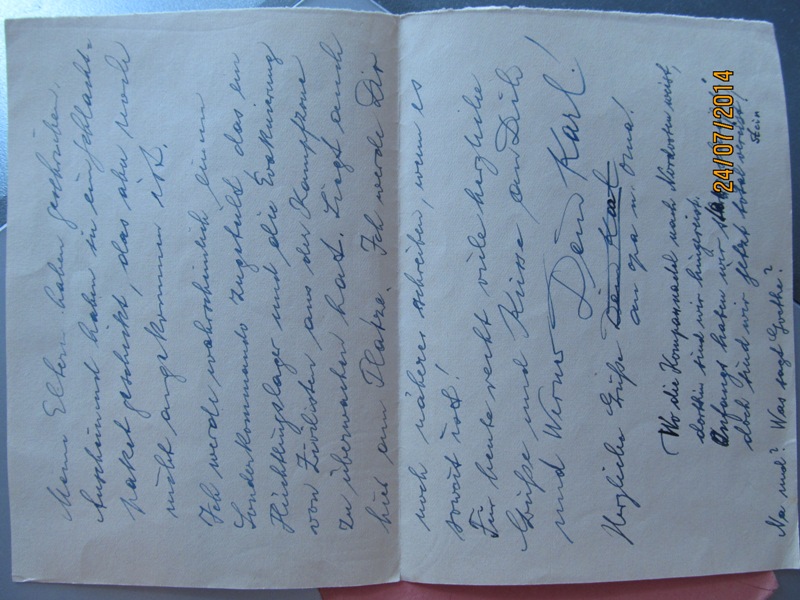 Meine Eltern haben geschrieben.
Anscheinend haben sie ein Schlacht=
paket geschickt, das aber noch
nicht angekommen ist.
Ich werde wahrscheinlich einem
Sonderkommando zugeteilt, das ein
Flüchtlingslager und die Evakuierung
von Zivilisten aus der Kampfzone
zu überwachen hat. Liegt auch
hier am Platze. Ich werde Dir
noch näheres schreiben, wenn es
soweit ist!
Für heute recht viele herzliche
Grüße und Küsse an Dich
und Werner Dein Karl!
Herzliche Grüße Dein Karl
an Opa u. Oma!
Wo die Kompassnadel nach Nordosten weist,
dorthin sind wir hingereist.
Anfangs haben wir
doch sind wir jetzt total
Stein
Na und? Was sagt Goethe?
24/07/2014